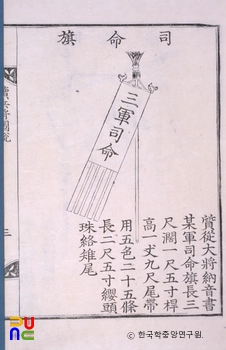 司命旗
三軍司命
質從大將納音書
某軍司命旗長三
尺濶一尺五寸桿
高一丈九尺尾帶
用五色二十五條
長二尺五寸纓頭
珠絡雉尾
© 한국학중앙연구원